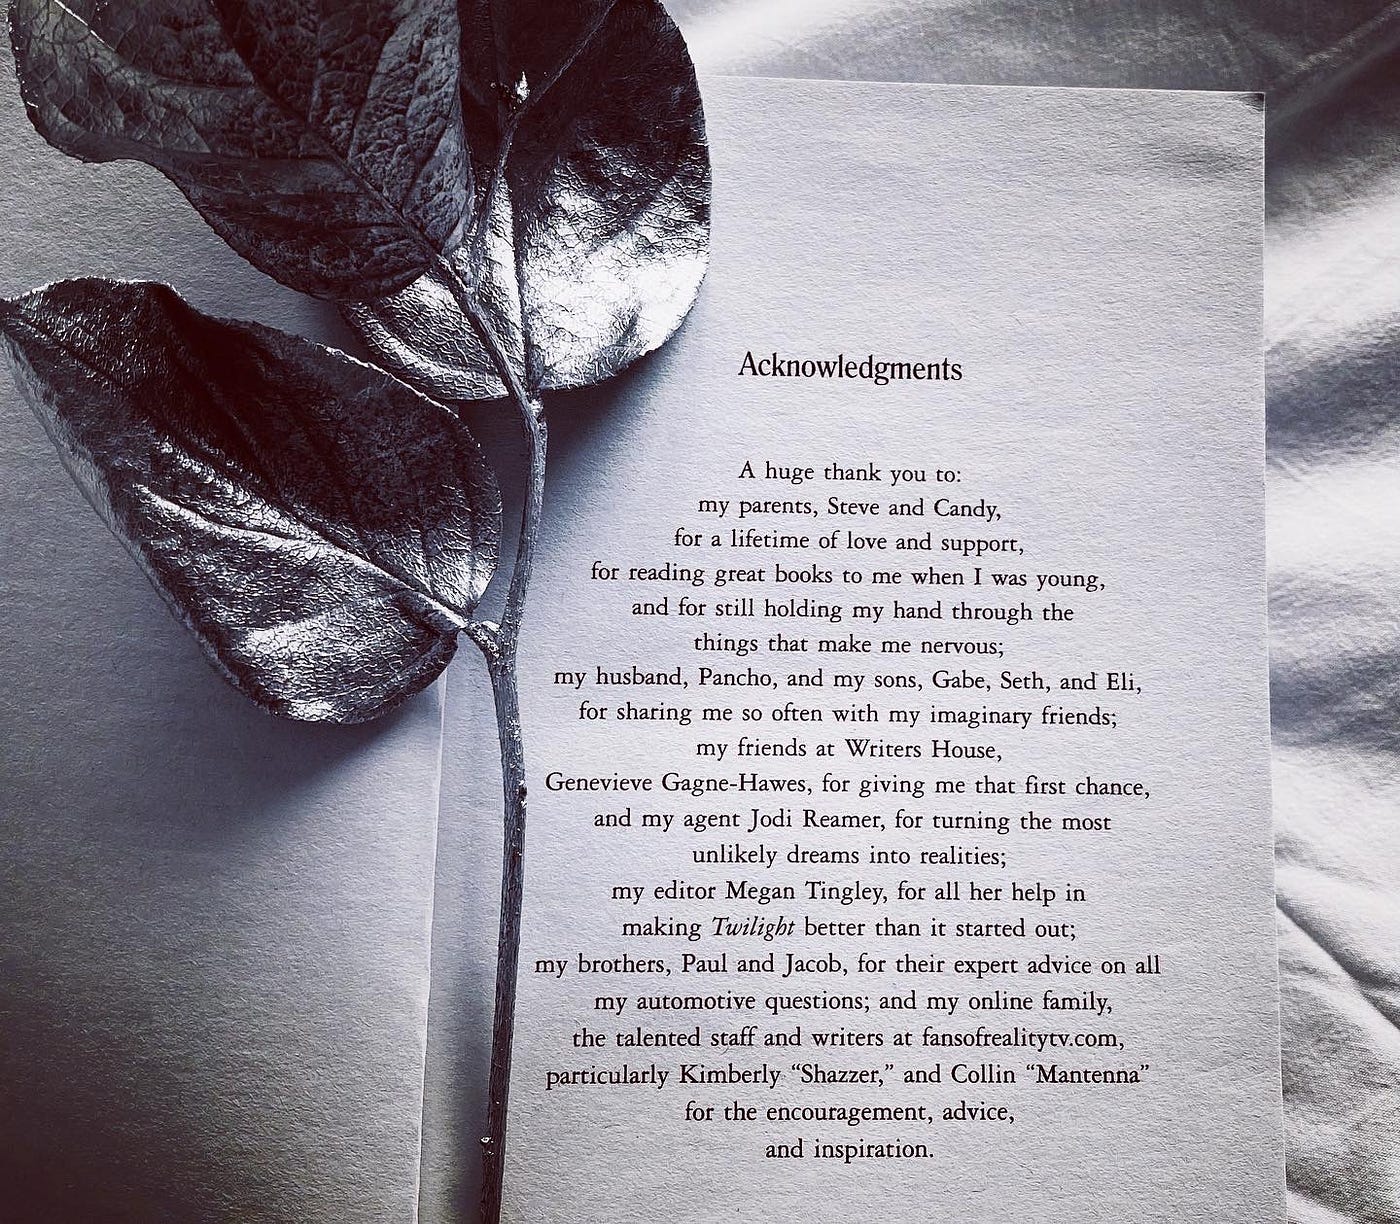 Acknowledgments
A huge thank you to:
my parents, Steve and Candy,
for a lifetime of love and support,
for reading great books to me when I was young,
and for still holding my hand through the
things that make me nervous;
my husband, Pancho, and my sons, Gabe, Seth, and Eli,
for sharing me so often with my imaginary friends;
my friends at Writers House,
Genevieve Gagne-Hawes, for giving me that first chance,
and my agent Jodi Reamer, for turning the most
unlikely dreams into realities;
my editor Megan Tingley, for all her help in
making Twilight better than it started out;
my brothers, Paul and Jacob, for their expert advice on all
my automotive questions; and my online family,
the talented staff and writers at fansofrealitytv.com,
particularly Kimberly “Shazzer,” and Collin “Mantenna”
for the encouragement, advice,
and inspiration.